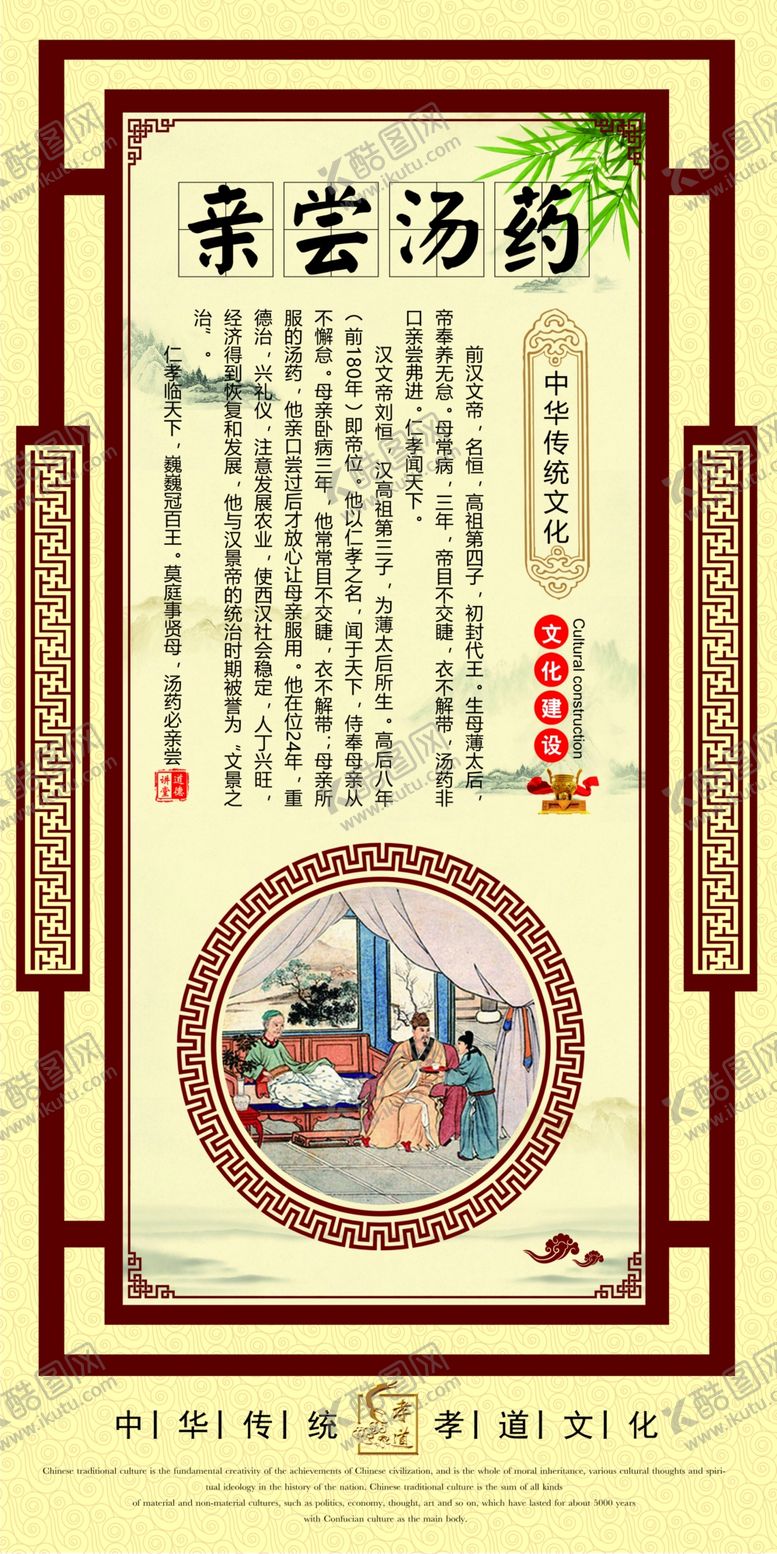 亲尝汤药
中华传统文化
文化建设
Cultural construction
前汉文帝，名恒，高祖第四子，初封代王。生母薄太后，
帝奉养无怠。母常病，三年，帝目不交睫，衣不解带，汤药非
口亲尝弗进。仁孝闻天下。
汉文帝刘恒，汉高祖第三子，为薄太后所生。高后八年
（前180年）即帝位。他以仁孝之名，闻于天下，侍奉母亲从
不懈怠。母亲卧病三年，他常常目不交睫，衣不解带；母亲所
服的汤药，他亲口尝过后才放心让母亲服用。他在位24年，重
德治，兴礼仪，注意发展农业，使西汉社会稳定，人丁兴旺，
经济得到恢复和发展，他与汉景帝的统治时期被誉为“文景之
治”。
仁孝临天下，巍巍冠百王。莫庭事贤母，汤药必亲尝
道德
讲堂
中华传统
孝道
孝道文化
Chinese traditional culture is the fundamental creativity of the achievements of Chinese civilization, and is the whole of moral inheritance, various cultural thoughts and spiri-
tual ideology in the history of the nation. Chinese traditional culture is the sum of all kinds
of material and non-material cultures, such as politics, economy, thought, art and so on, which have lasted for about 5000 years
with Confucian culture as the main body.
酷图网
www.ikutu.com